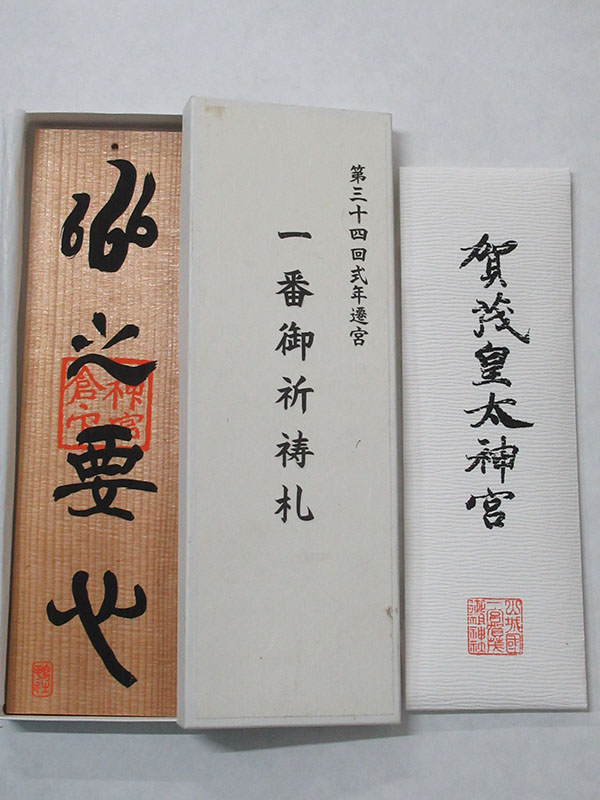 賀茂皇太神宮
山城國
一宮賀茂
御祖神社
第三十四回式年遷宮
一番御祈祷札
之要也
鴨社